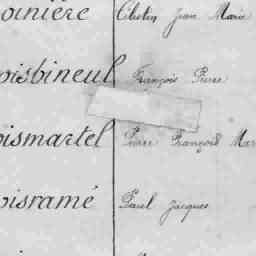 oinière Célestin Jean Marie
oisbineul François Pierre
oismartel Pierre François Mar
oisramé Paul Jacques